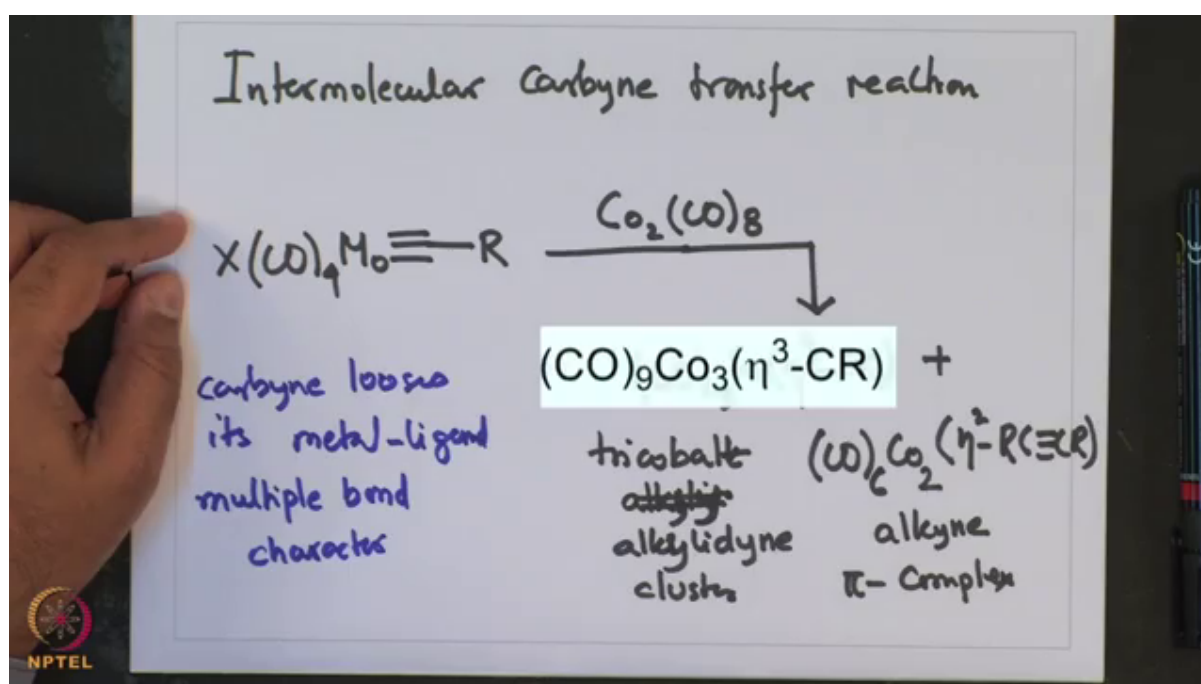 Intermolecular Carbyne transfer reaction
Co₂(CO)8
X(CO)₄Mo≡—R
(CO)₉Co₃(η³-CR) +
carbyne looses
its metal-ligand
multiple bond
character
tricobalt
alkylidyne
cluster
(CO)₆Co₂(η²-RC≡CR)
alkyne
π-Complex
NPTEL